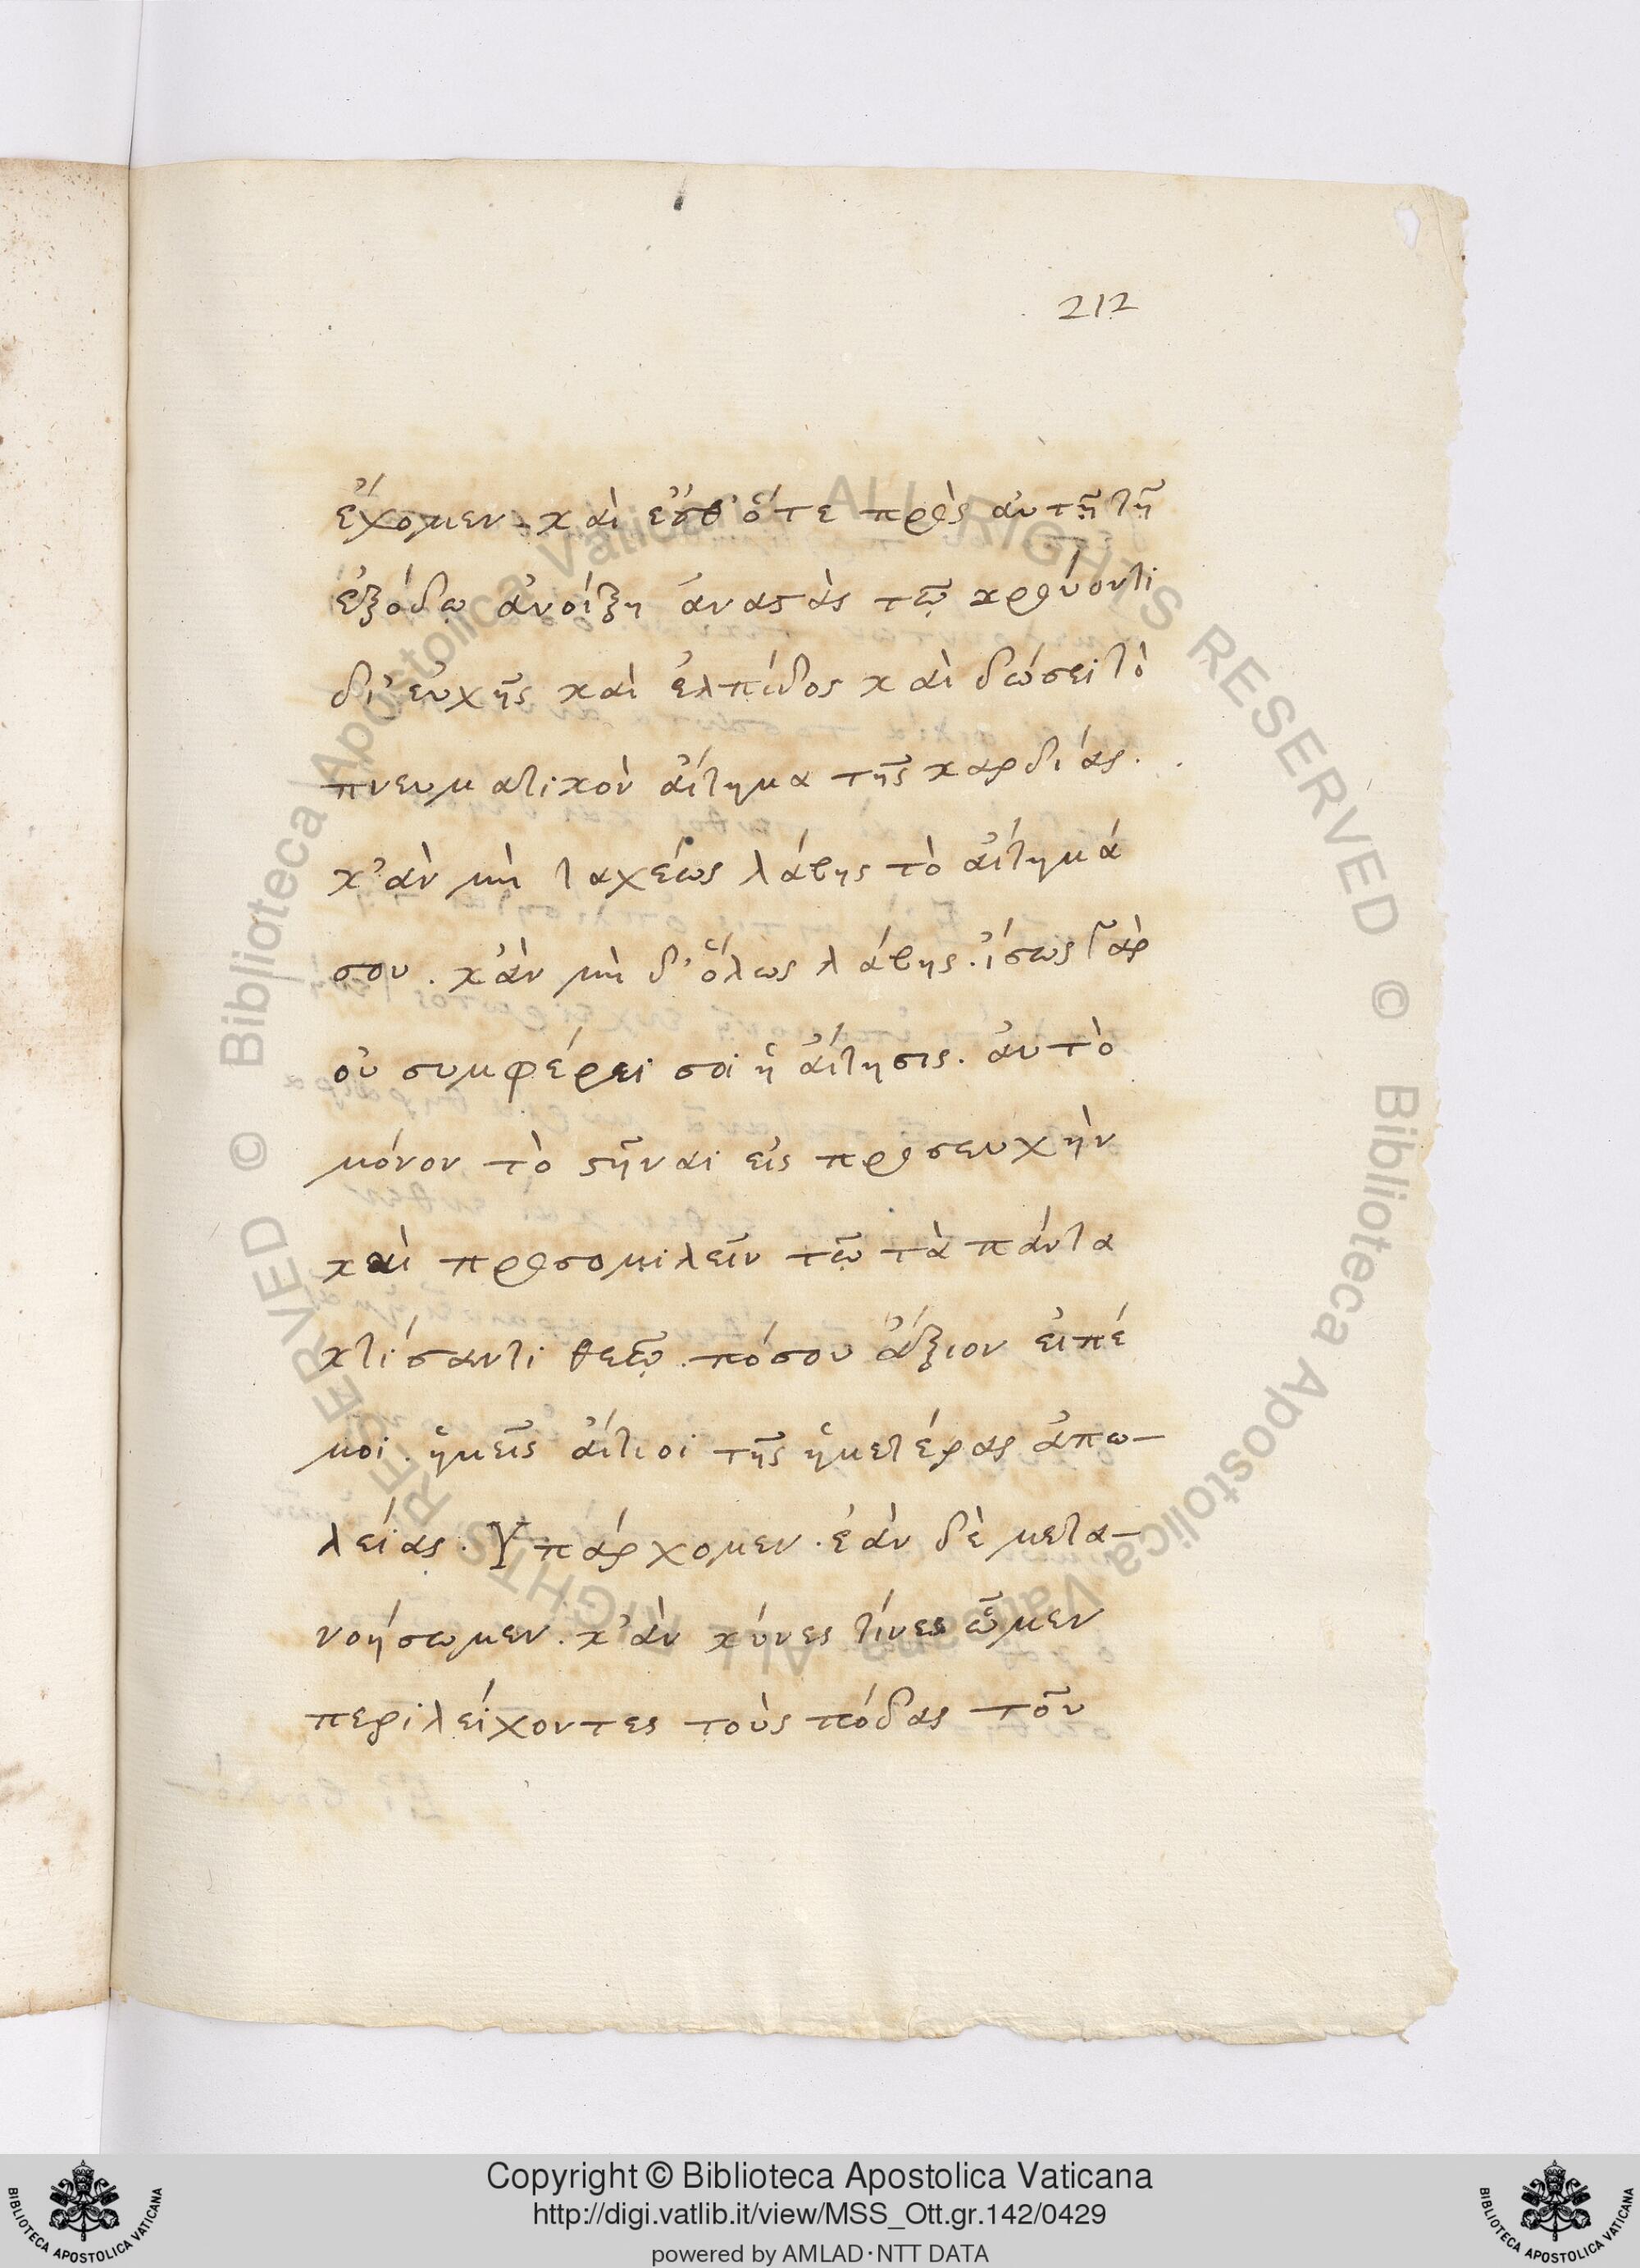 212
ἔχομεν. καὶ ἔσθ' ὅτε πρὸς αὐτῆ τῆ
ἐξόδω ἀνοίξη ἀναστὰς τῶ κρούοντι
δι' εὐχῆς καὶ ἐλπίδος καὶ δώσει τὸ
πνευματικὸν αἴτημα τῆς καρδίας.
κ' ἀν μὴ ταχέως λάβης τὸ αἴτημά
σου. κ' ἀν μὴ δ' ὅλως λάβης. ἴσως γὰρ
οὐ συμφέρει σοι ἡ αἴτησις. αὐτὸ
μόνον τὸ στῆναι εἰς προσευχὴν
καὶ προσομιλεῖν τῶ τὰ πάντα
κτίσαντι θεῶ. πόσου ἄξιον εἰπέ
μοι. ἡμεῖς αἴτιοι τῆς ἡμετέρας ἀπω-
λείας. Ὑπάρχομεν. ἐὰν δὲ μετα-
νοήσωμεν. κ' ἀν κύνες τίνες ὦμεν
περιλείχοντες τοὺς πόδας τοῦ
Copyright © Biblioteca Apostolica Vaticana
http://digi.vatlib.it/view/MSS_Ott.gr.142/0429
powered by AMLAD·NTT DATA
BIBLIOTECA APOSTOLICA VATICANA
BIBLIOTECA APOSTOLICA VATICANA
© Biblioteca Apostolica Vaticana ALL RIGHTS RESERVED
© Biblioteca Apostolica Vaticana ALL RIGHTS RESERVED